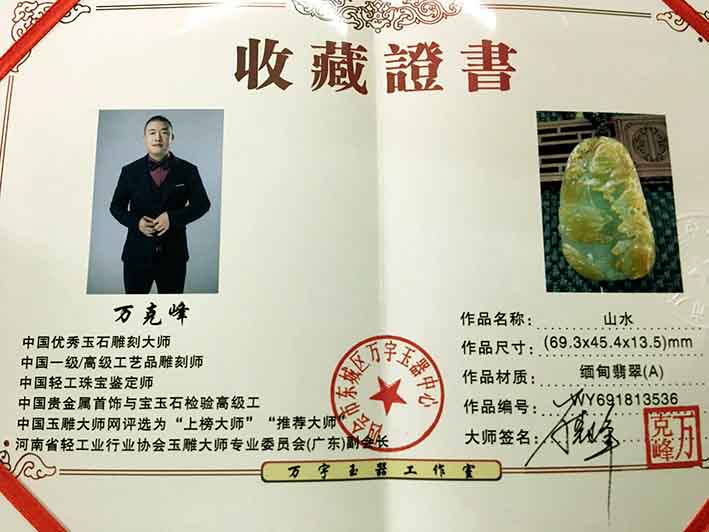 收藏證書
万克峰
中国优秀玉石雕刻大师
中国一级/高级工艺品雕刻师
中国轻工珠宝鉴定师
中国贵金属首饰与宝玉石检验高级工
中国玉雕大师网评选为“上榜大师”“推荐大师”
河南省轻工业行业协会玉雕大师专业委员会(广东)副会长
四会市东城区万宇玉器中心
作品名称: 山水
作品尺寸: (69.3x45.4x13.5)mm
作品材质: 缅甸翡翠(A)
作品编号: WY691813536
大师签名: 万克峰
万克峰
万宇玉器工作室